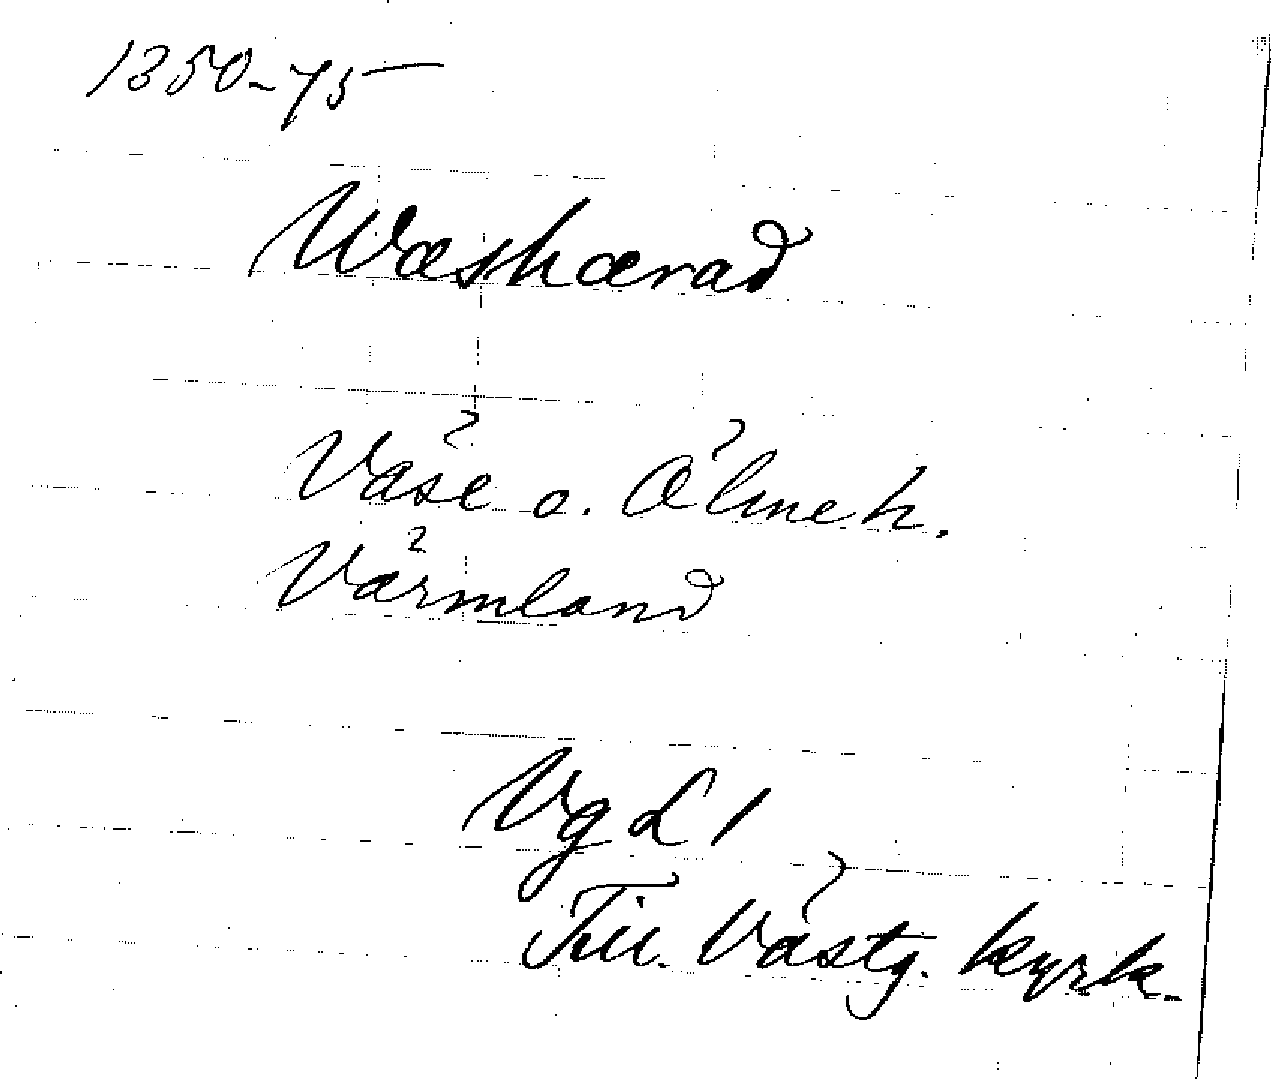 1350-75
Wæshærad
Väse o. Ölme h.
Värmland
Vg L 1
Till. Västg. kyrk.